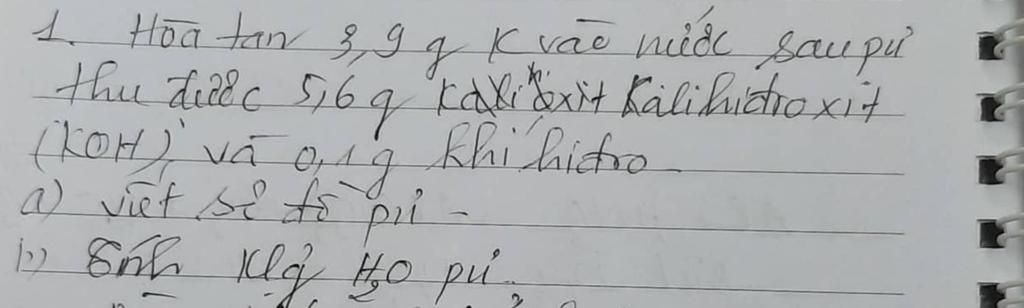 1. Hòa tan 3,9 g K vào nước sau pứ
thu được 5,6 g Kalihidroxit
(KOH), và 0,1g khí hidro
a) viết sơ đồ pứ -
b) tính Klg H2O pứ.